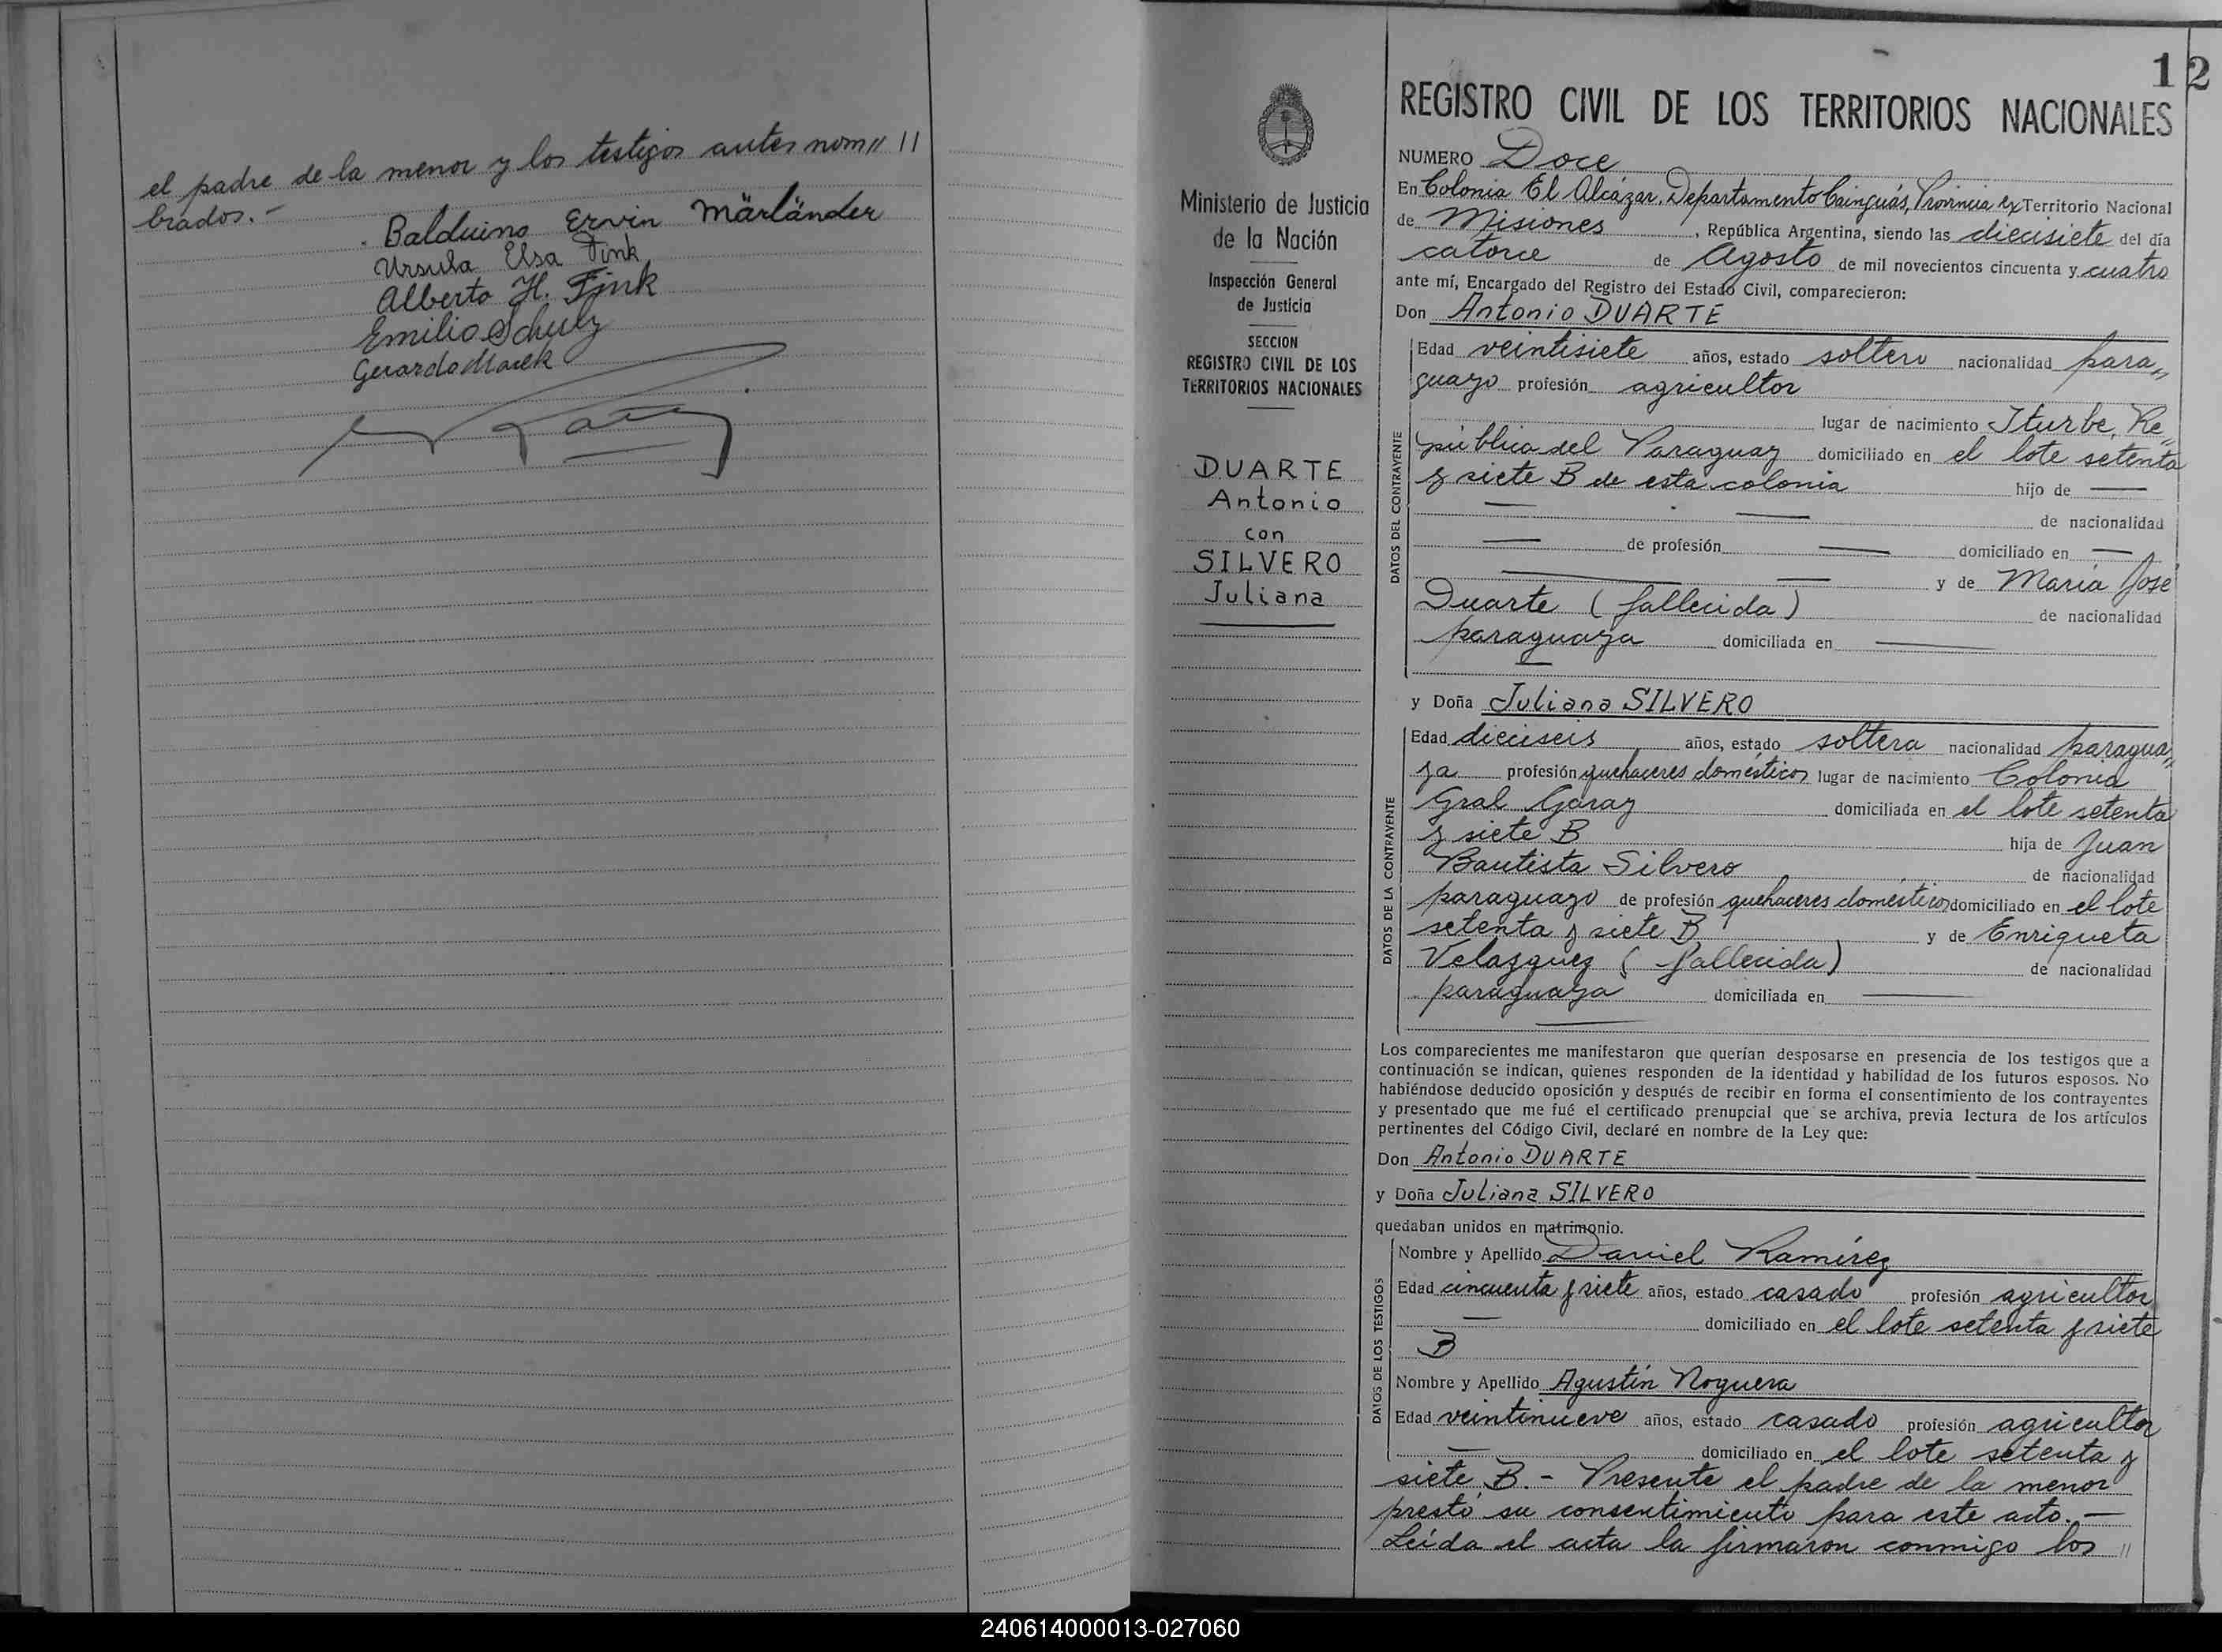 el padre de la menor y los testigos antes nom〃 11
brados.-
Balduino Ervin Märländer
Ursula Elsa Fink
Alberto H. Fink
Emilio Schulz
Gerardo Marek
12
REGISTRO CIVIL DE LOS TERRITORIOS NACIONALES
Ministerio de Justicia
de la Nación
Inspección General
de Justicia
SECCION
REGISTRO CIVIL DE LOS
TERRITORIOS NACIONALES
DUARTE
Antonio
con
SILVERO
Juliana
NUMERO Doce
En Colonia El Alcázar, Departamento Cainguás, Provincia ex Territorio Nacional
de Misiones, República Argentina, siendo las diecisiete del día
catorce de Agosto de mil novecientos cincuenta y cuatro
ante mí, Encargado del Registro del Estado Civil, comparecieron:
Don Antonio DUARTE
DATOS DEL CONTRAYENTE
Edad veintisiete años, estado soltero nacionalidad para〃
guayo profesión agricultor
lugar de nacimiento Iturbe, Re〃
pública del Paraguay domiciliado en el lote setenta
y siete B de esta colonia hijo de —
— — de nacionalidad
— de profesión — domiciliado en —
— — y de María José
Duarte (fallecida) de nacionalidad
paraguaya domiciliada en —
—
y Doña Juliana SILVERO
DATOS DE LA CONTRAYENTE
Edad dieciseis años, estado soltera nacionalidad paragua〃
ya profesión quehaceres domésticos lugar de nacimiento Colonia
Gral Garay domiciliada en el lote setenta
y siete B hija de Juan
Bautista Silvero de nacionalidad
paraguayo de profesión quehaceres domésticos domiciliado en el lote
setenta y siete B y de Enriqueta
Velazquez (fallecida) de nacionalidad
paraguaya domiciliada en —
—
Los comparecientes me manifestaron que querían desposarse en presencia de los testigos que a
continuación se indican, quienes responden de la identidad y habilidad de los futuros esposos. No
habiéndose deducido oposición y después de recibir en forma el consentimiento de los contrayentes
y presentado que me fué el certificado prenupcial que se archiva, previa lectura de los artículos
pertinentes del Código Civil, declaré en nombre de la Ley que:
Don Antonio DUARTE
y Doña Juliana SILVERO
quedaban unidos en matrimonio.
DATOS DE LOS TESTIGOS
Nombre y Apellido Daniel Ramírez
Edad cincuenta y siete años, estado casado profesión agricultor
— domiciliado en el lote setenta y siete
B
Nombre y Apellido Agustín Noguera
Edad veintinueve años, estado casado profesión agricultor
— domiciliado en el lote setenta y
siete B. - Presente el padre de la menor
prestó su consentimiento para este acto. —
Leída el acta la firmaron conmigo los 〃
240614000013-027060